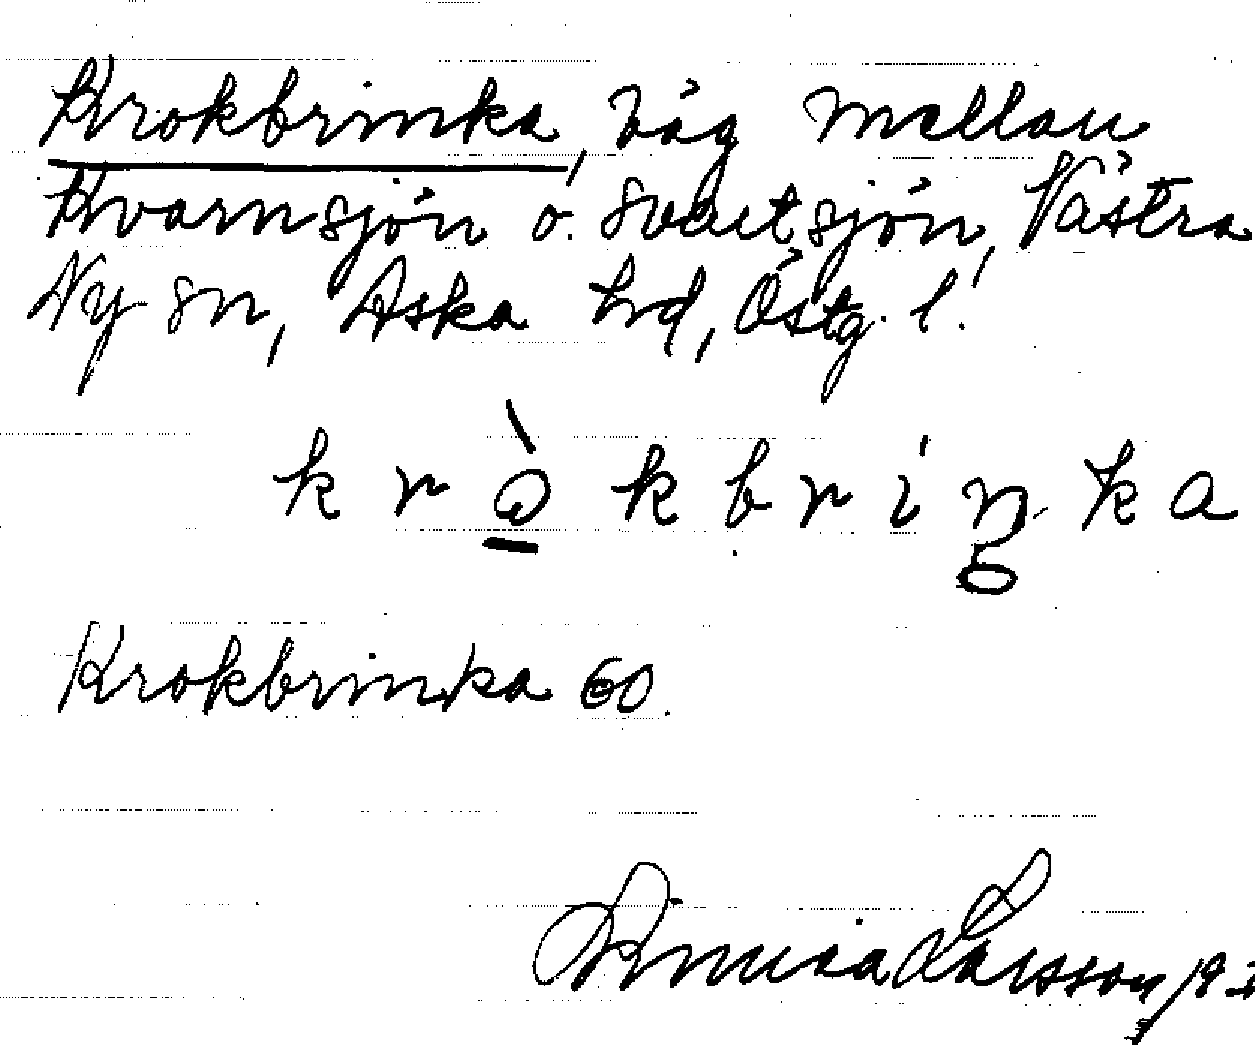 Krokbrinka, väg mellan
Kvarnsjön o. Svartsjön, Västra
Ny sn, Aska hd, Östg. l.
k r ò k b r i ŋ k a
Krokbrinka 60.
Larsson 19